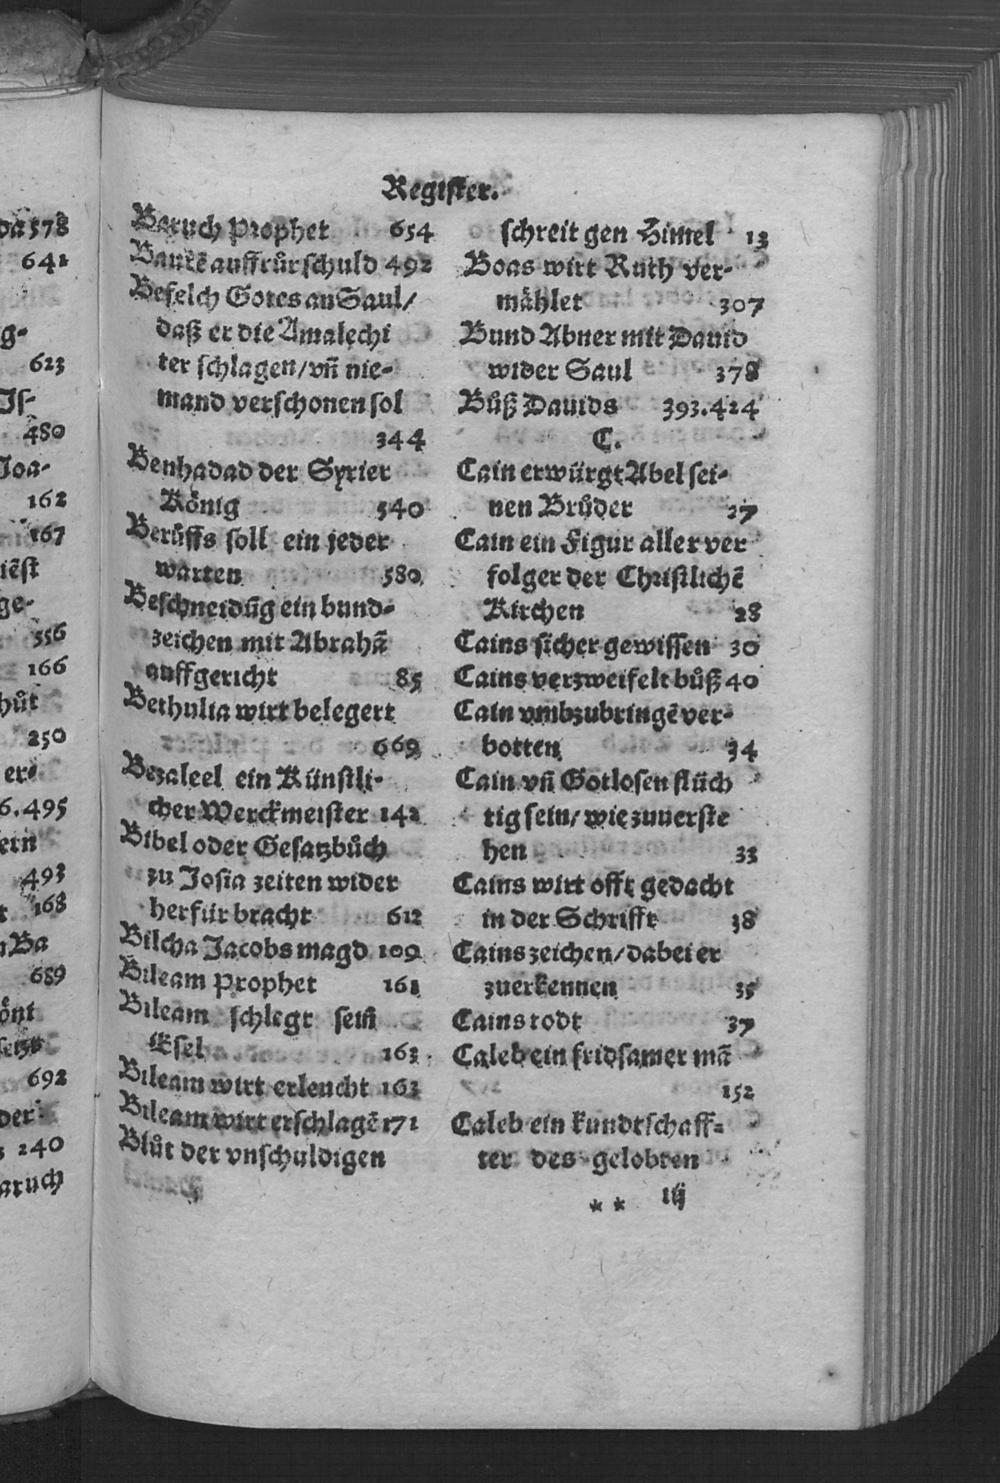 da 578
641
g-
623
Js-
480
Joa-
162
167
iẽst
ge-
556
166
hůt
250
er-
6.495
ern
493
168
Ba
689
önt
692
der
240
aruch
Register.
Baruch Prophet 654
Baurẽ auffrůr schuld 492
Befelch Gotes an Saul/
daß er die Amalechi
ter schlagen/ vñ nie-
mand verschonen sol
344
Benhadad der Syrier
König 540
Berůffs soll ein jeder
warten 580
Beschneidũg ein bund-
zeichen mit Abrahã
auffgericht 85
Bethulia wirt belegert
669
Bezaleel ein Künstli-
cher Werckmeister 142
Bibel oder Gesatzbůch
zu Josia zeiten wider
herfür bracht 612
Bilcha Jacobs magd 109
Bileam Prophet 161
Bileam schlegt sein
Esel 163
Bileam wirt erleucht 163
Bileam wirt erschlagẽ 171
Blůt der vnschuldigen
schreit gen Himel 13
Boas wirt Ruth ver-
mählet 307
Bund Abner mit Dauid
wider Saul 378
Bůß Dauids 393.424
C.
Cain erwürgt Abel sei-
nen Brůder 27
Cain ein Figur aller ver
folger der Christlichẽ
Kirchen 28
Cains sicher gewissen 30
Cains verzweifelt bůß 40
Cain vmbzubringẽ ver-
botten 34
Cain vñ Gotlosen flüch
tig sein/ wie zuuerste
hen 33
Cains wirt offt gedacht
in der Schrifft 38
Cains zeichen/ dabei er
zuerkennen 35
Cains todt 37
Caleb ein fridsamer mã
152
Caleb ein kundtschaff-
ter des gelobten
** iij